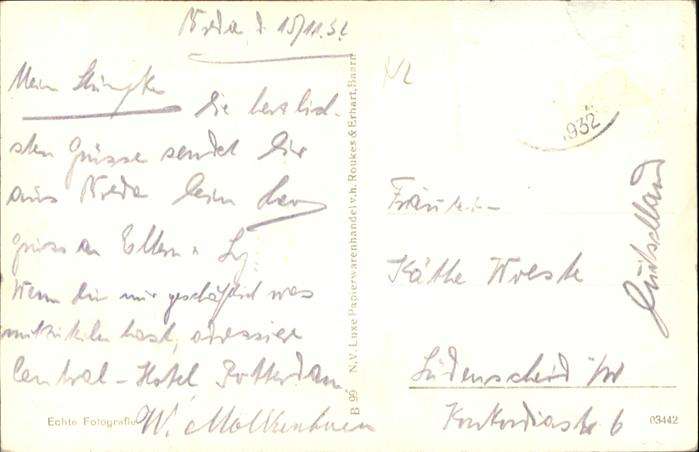 Breda, d 15/11.32
Mein
die herzlich-
sten Grüsse sendet Dir
aus Breda Dein
Gruss an Eltern u.
Wenn Du mir geschäftlich was
mitzuteilen hast, adressiere
Central-Hotel Rotterdam
W. Molkenbuer
Echte Fotografie
B 99 N.V. Luxe Papierwarenhandel v.h. Roukes & Erhart, Baarn
932
Fräulein
Käthe Woeste
Lüdenscheid i/W
Konkordiastr 6
Deutschland
03442